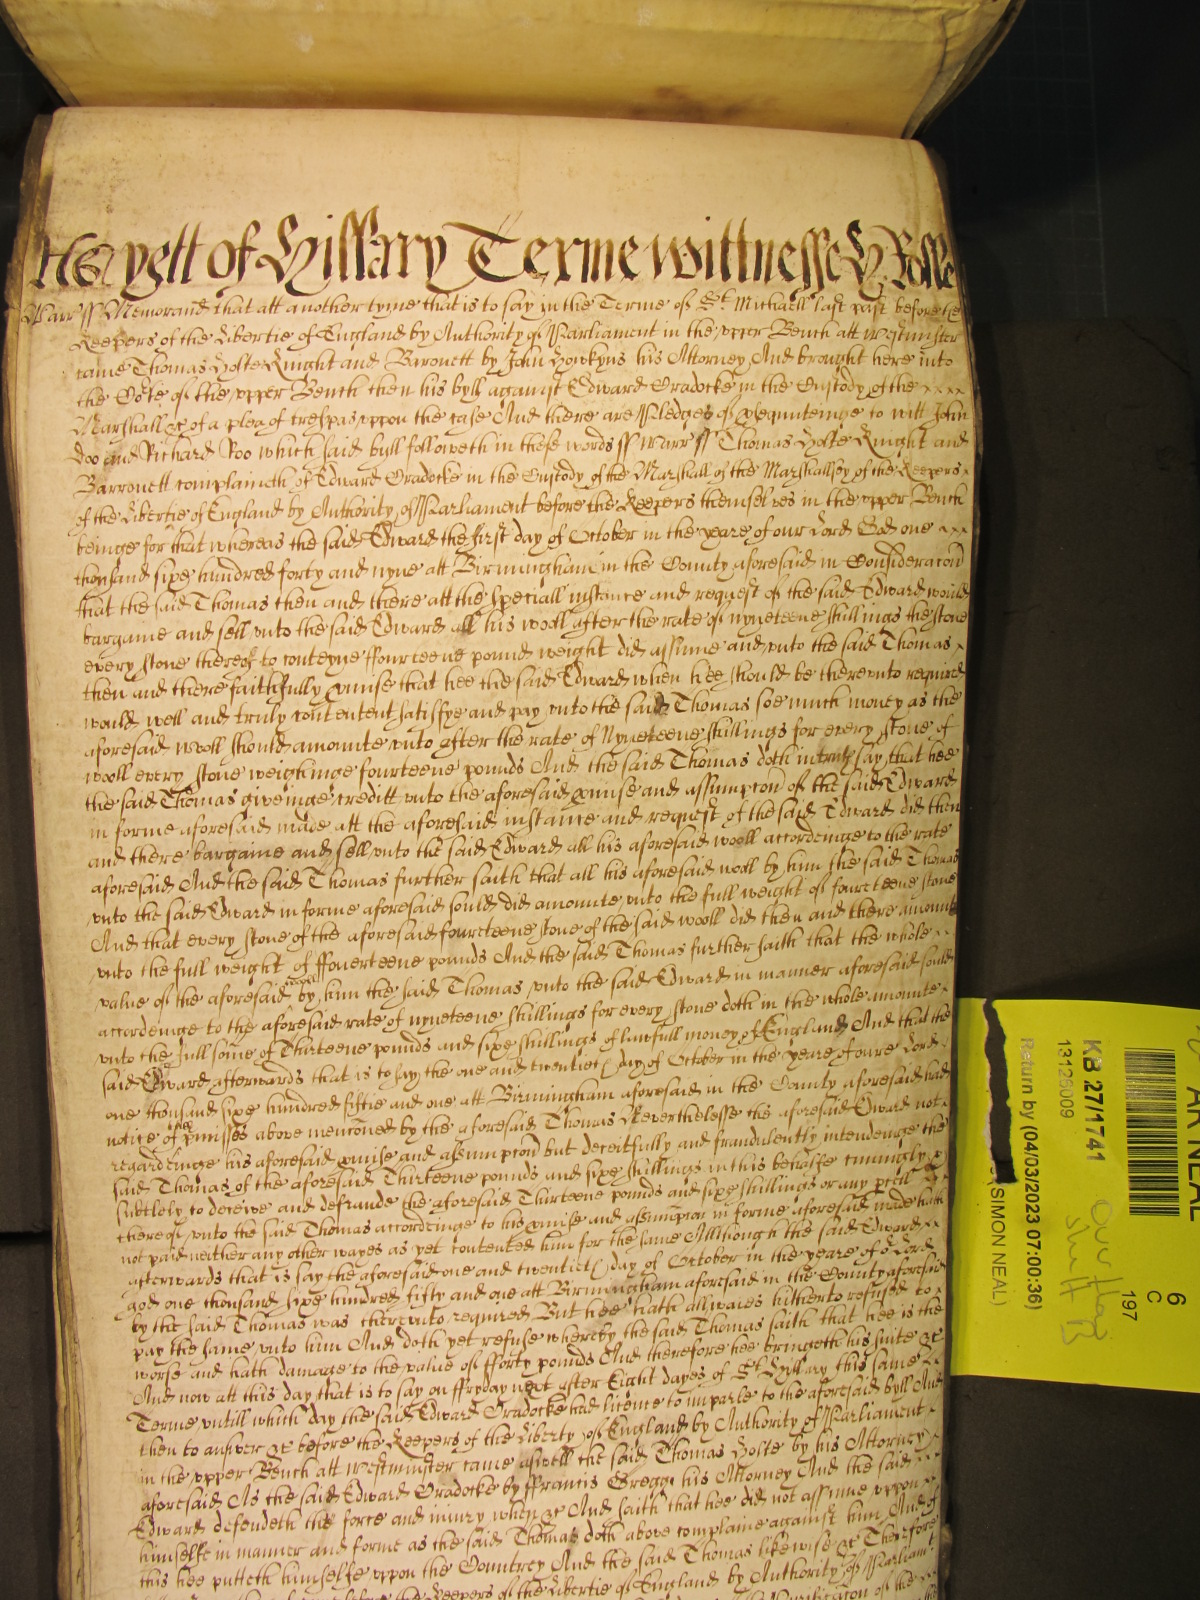 As yett of Hillary Terme wittnesse H Rolle
Warr ss Memorand that att another tyme that is to say in the Terme of St. Michaell last past before the
Keepers of the Libertie of England by Authority of Parliament in the upper Bench att Westminster
came Thomas Holte Knight and Baronett by John Howkyns his Attorney And brought here into
the Cote of the upper Bench then his byll against Edward Cradocke in the Custody of the
Marshall &c of a plea of trespas uppon the case And there are Pledges of p̱sequuteinge to witt John
Doo and Richard Roo which said byll followeth in these words ss Warr ss Thomas Holte Knight and
Barronett complaineth of Edward Cradocke in the Custody of the Marshall of the Marshallsey of the Keepers
of the Libertie of England by Authority of Parliament before the Keepers themselves in the upper Bench
beinge for that whereas the said Edward the first day of October in the yeare of our Lord God one
thousand sixe hundred forty and nyne att Birmingham in the County aforesaid in Consideracon
that the said Thomas then and there att the speciall instance and request of the said Edward would
bargaine and sell unto the said Edward all his wooll after the rate of nyneteene shillings the stone
every stone thereof to conteyne ffourteene pound weight did assume and unto the said Thomas
then and there faithfully p̱mise that hee the said Edward when hee should be thereunto required
would well and truly content satisfye and pay unto the said Thomas soe much money as the
aforesaid wooll should amounte unto after the rate of Nyneteene shillings for every stone of
wooll every stone weighinge fourteene pounds And the said Thomas doth in truth say that hee
the said Thomas giveinge creditt unto the aforesaid p̱mise and assumpcon of the said Edward
in forme aforesaid made att the aforesaid instance and request of the said Edward did then
and there bargaine and sell unto the said Edward all his aforesaid wooll accordeinge to the rate
aforesaid And the said Thomas further saith that all his aforesaid wooll by him the said Thomas
unto the said Edward in forme aforesaid sould did amounte unto the full weight of fourteene stone
And that every stone of the aforesaid fourteene stone of the said wooll did then and there amounte
unto the full weight of ffouerteene pounds And the said Thomas further saith that the whole
value of the aforesaid wooll by him the said Thomas unto the said Edward in manner aforesaid sould
accordeinge to the aforesaid rate of nyneteene shillings for every stone doth in the whole amounte
unto the full some of Thirteene pounds and sixe shillings of lawfull money of England And that the
said Edward afterwards that is to say the one and twentieth day of October in the yeare of oure Lord
one thousand sixe hundred fiftie and one att Birmingham aforesaid in the County aforesaid had
notice of the p̱misses above mencioned by the aforesaid Thomas Neverthelesse the aforesaid Edward not
regardeinge his aforesaid p̱mise and assumpcon but deceitfully and fraudulently intendeinge the
said Thomas of the aforesaid Thirteene pounds and sixe shillings in this behalfe cuningly &
subtlely to deceive and defraude the aforesaid Thirteene pounds and sixe shillings or any p̱cell
thereof unto the said Thomas accordeinge to his p̱mise and assumpcon in forme aforesaid made hath
not paid neither any other wayes as yet contented him for the same Allthough the said Edward
afterwards that is say the aforesaid one and twentieth day of October in the yeare of oʳ Lord
god one thousand sixe hundred fifty and one att Birmingham aforesaid in the County aforesaid
by the said Thomas was thereunto required But hee hath allwaies hitherto refused to
pay the same unto him And doth yet refuse whereby the said Thomas saith that hee is the
worse and hath damage to the value of fforty pounds And therefore hee bringeth his suite &c
And now att this day that is to say on ffryday next after Eight dayes of St Hillary this same
Terme untill which day the said Edward Cradocke had licence to imparle to the aforesaid byll And
then to answer &c before the Keepers of the Liberty of England by Authority of Parliament
in the upper Bench att Westminster came aswell the said Thomas Holte by his Attorney
aforesaid As the said Edward Cradocke by ffrancis Gregge his Attorney And the said
Edward defendeth the force and iniury when &c And saith that hee did not assume uppon
himselfe in manner and forme as the said Thomas doth above complaine against him And of
this hee putteth himselfe uppon the Countrey And the said Thomas likewise &c Therefore
the Keepers of the Libertie of England by Authority of Parliamt
KB 27/1741
13126009
Return by (04/03/2023 07:00:36)
(SIMON NEAL)
6
C
197